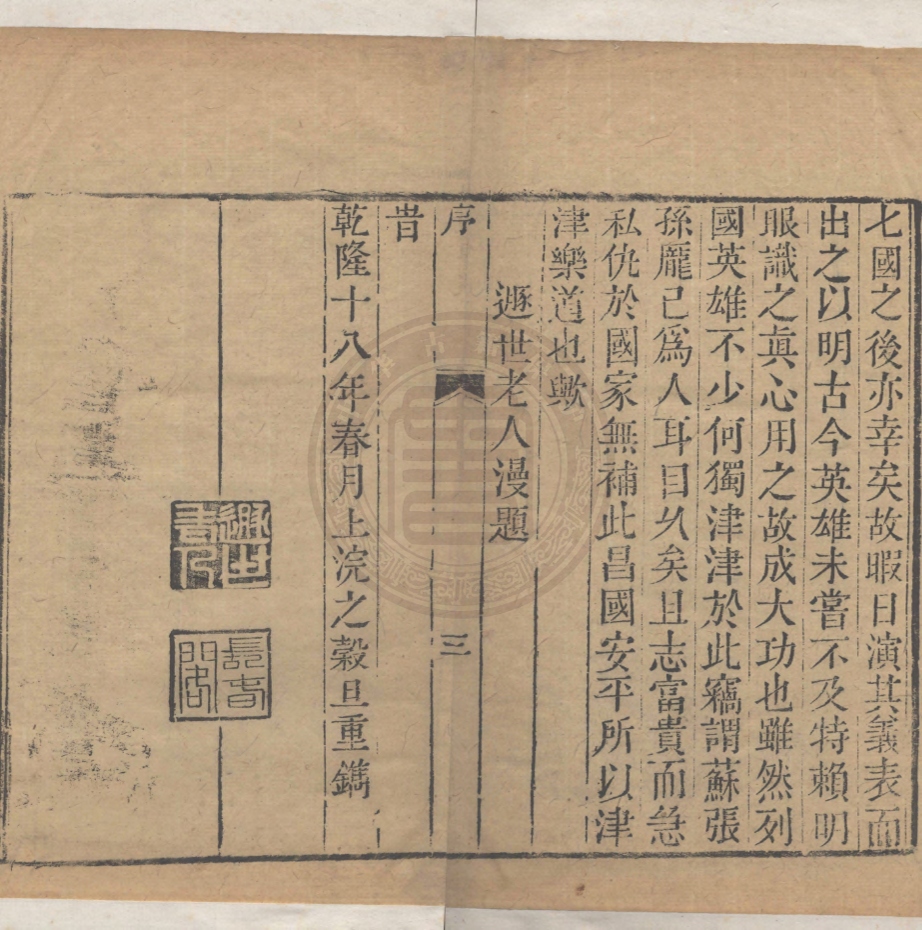 七國之後亦幸矣故暇日演其義表而
出之以明古今英雄未嘗不及特賴明
眼識之眞心用之故成大功也雖然列
國英雄不少何獨津津於此竊謂蘇張
孫龐已爲人耳目久矣且志富貴而急
私仇於國家無補此昌國安平所以津
津樂道也歟
遯世老人漫題
序 三
旹
乾隆十八年春月上浣之穀旦重鐫
遯世老人